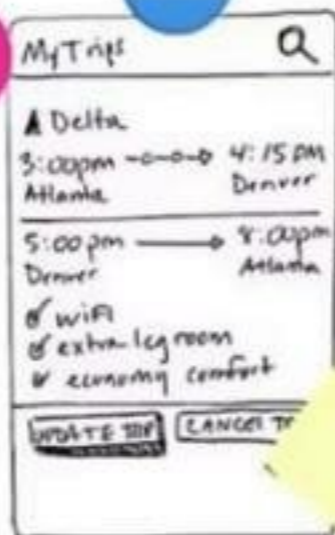 MyTrips
Delta
3:00pm 4:15pm
Atlanta Denver
5:00pm 8:00pm
Denver Atlanta
wifi
extra legroom
economy comfort
UPDATE TRIP CANCEL